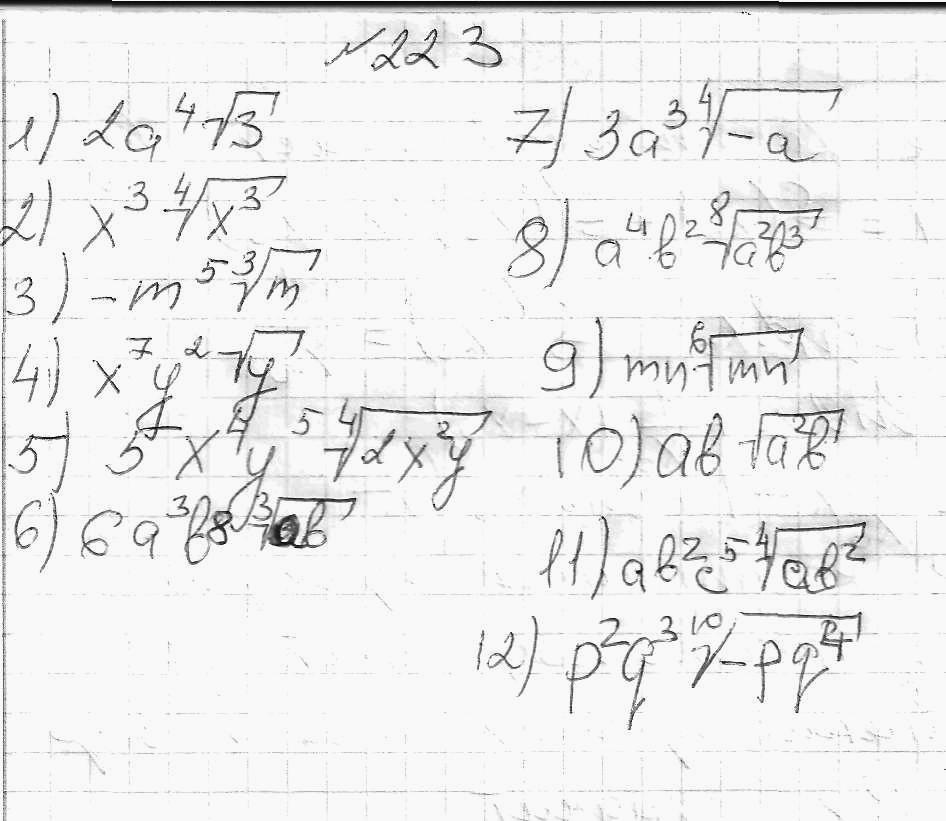 №223
1) 2a⁴√3
2) x³ ⁴√x³
3) -m⁵ ³√m
4) x⁷y² √y
5) 5 x⁴y⁵ ⁴√2x²y
6) 6a³b⁸ ³√ab
7) 3a³ ⁴√-a
8) a⁴b² ⁸√a²b³
9) mn ⁶√mn
10) ab √a²b
11) ab²c⁵ ⁴√ab²
12) p²q³ ¹⁰√-pq⁴